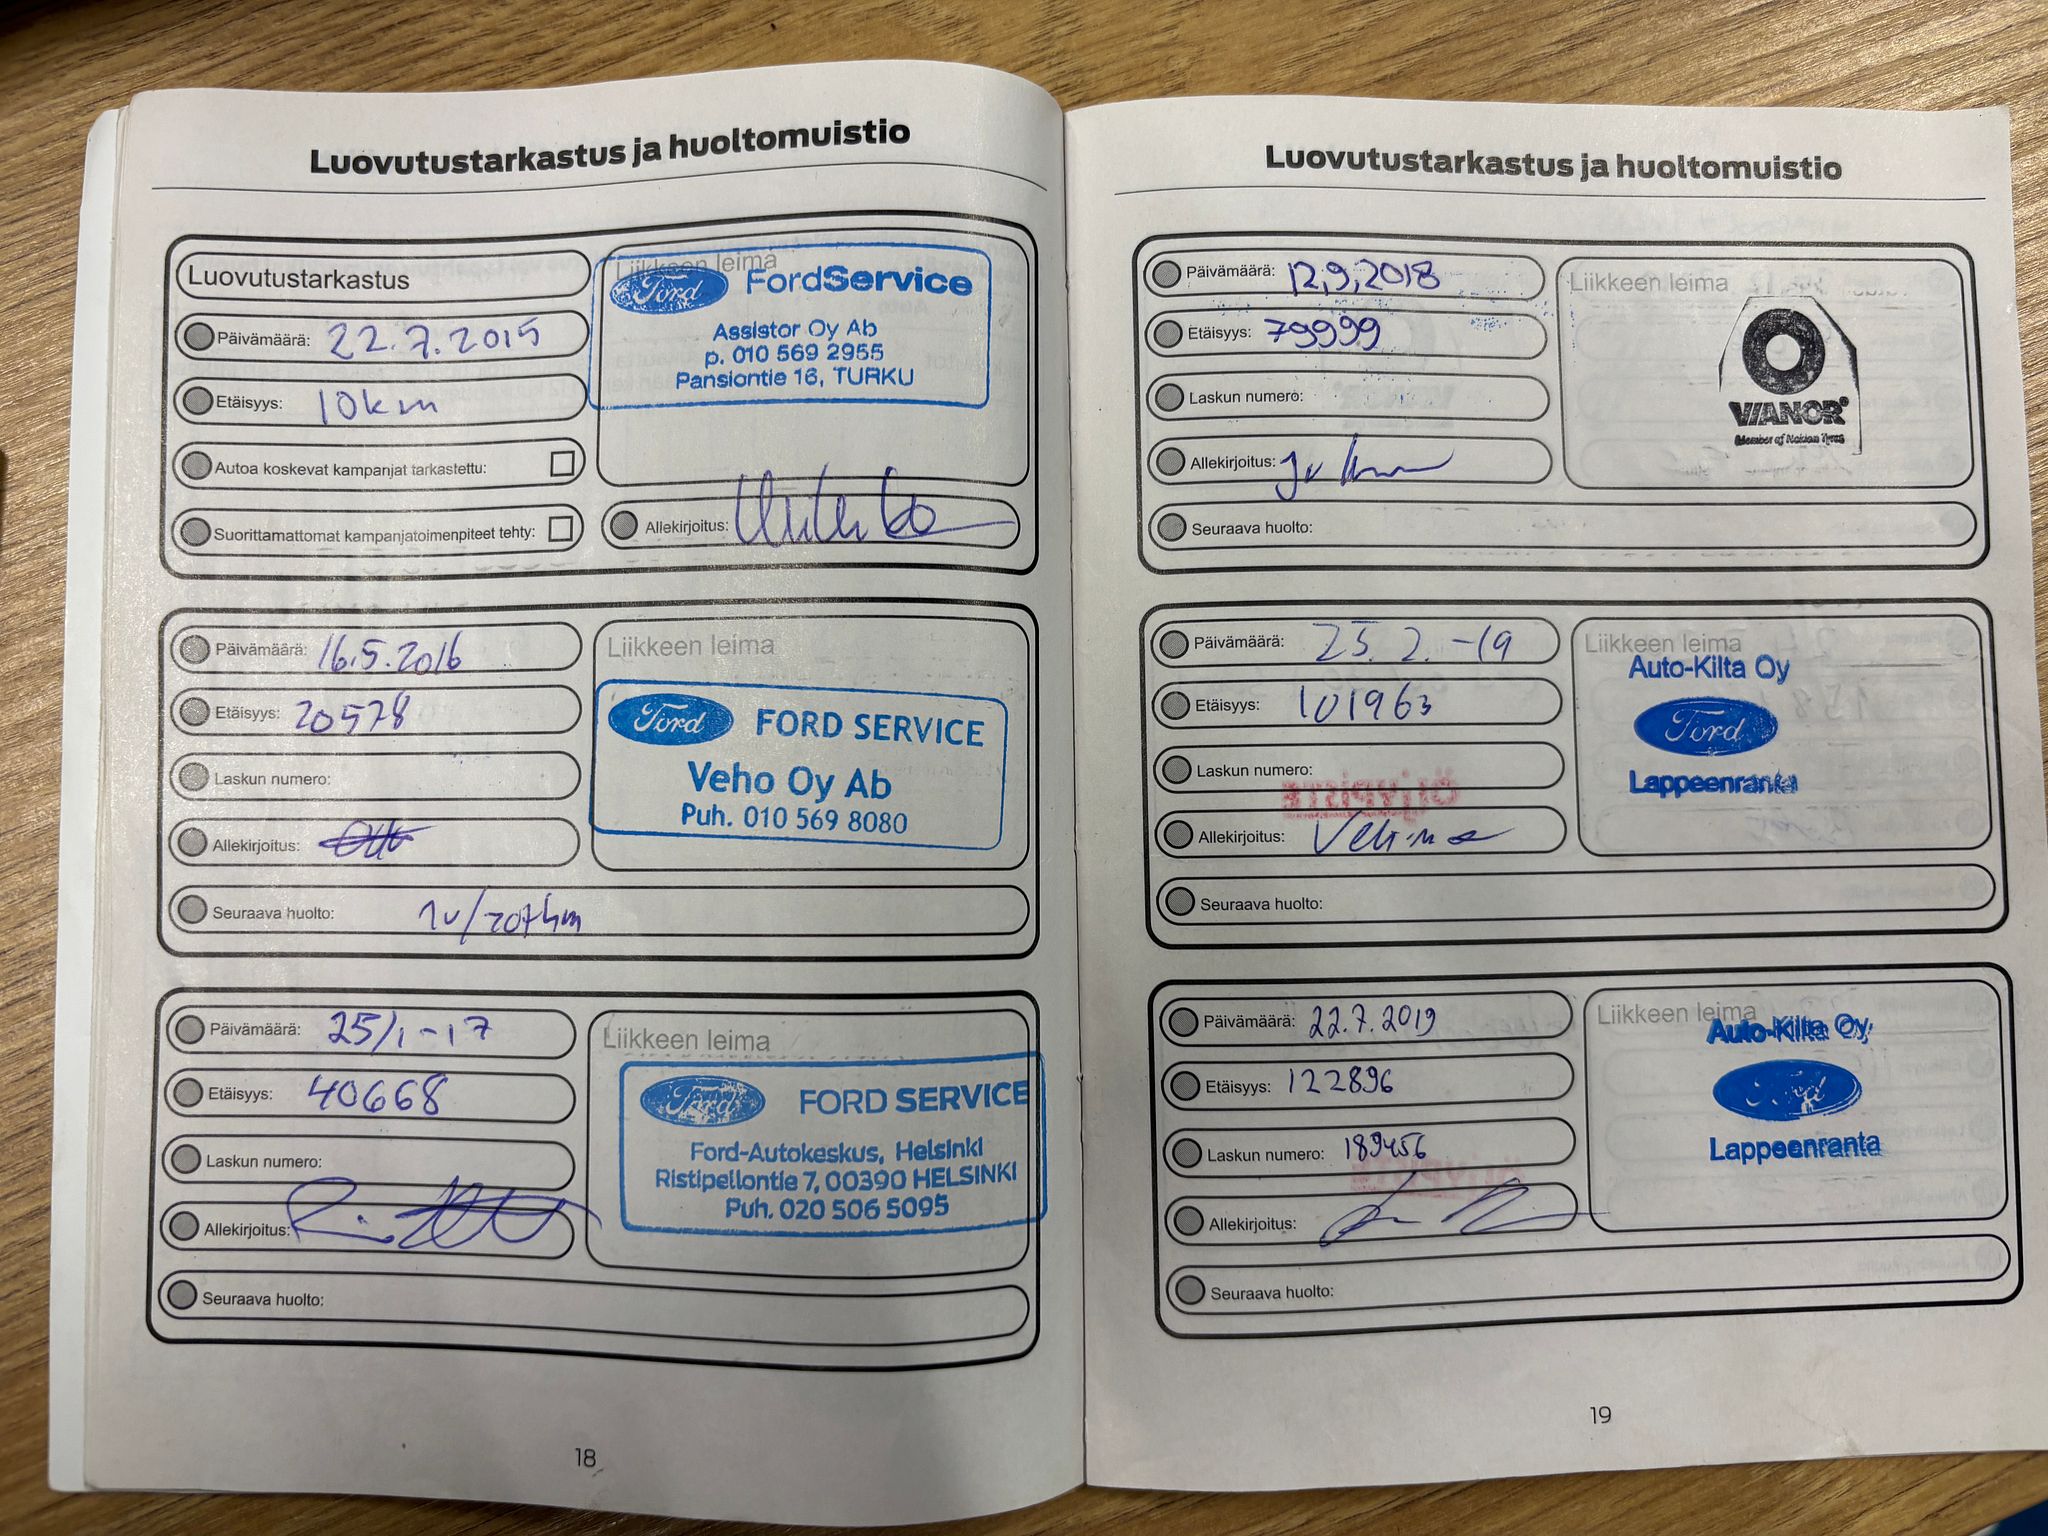 Luovutustarkastus ja huoltomuistio
Luovutustarkastus
Päivämäärä: 22.7.2015
Etäisyys: 10km
Autoa koskevat kampanjat tarkastettu:
Suorittamattomat kampanjatoimenpiteet tehty:
Liikkeen leima
Ford FordService
Assistor Oy Ab
p. 010 569 2955
Pansiontie 16, TURKU
Allekirjoitus:
Päivämäärä: 16.5.2016
Etäisyys: 20578
Laskun numero:
Allekirjoitus:
Liikkeen leima
Ford FORD SERVICE
Veho Oy Ab
Puh. 010 569 8080
Seuraava huolto: 1v/20tkm
Päivämäärä: 25/1-17
Etäisyys: 40668
Laskun numero:
Allekirjoitus:
Liikkeen leima
Ford FORD SERVICE
Ford-Autokeskus, Helsinki
Ristipellontie 7, 00390 HELSINKI
Puh. 020 506 5095
Seuraava huolto:
18
Luovutustarkastus ja huoltomuistio
Päivämäärä: 12,9,2018
Etäisyys: 79999
Laskun numero:
Allekirjoitus:
Liikkeen leima
VIANOR
Member of Nokian Tyres
Seuraava huolto:
Päivämäärä: 25.2.-19
Etäisyys: 101963
Laskun numero:
Allekirjoitus:
Liikkeen leima
Auto-Kilta Oy
Ford
Lappeenranta
Seuraava huolto:
Päivämäärä: 22.7.2019
Etäisyys: 122896
Laskun numero: 189456
Allekirjoitus:
Liikkeen leima
Auto-Kilta Oy
Ford
Lappeenranta
Seuraava huolto:
19